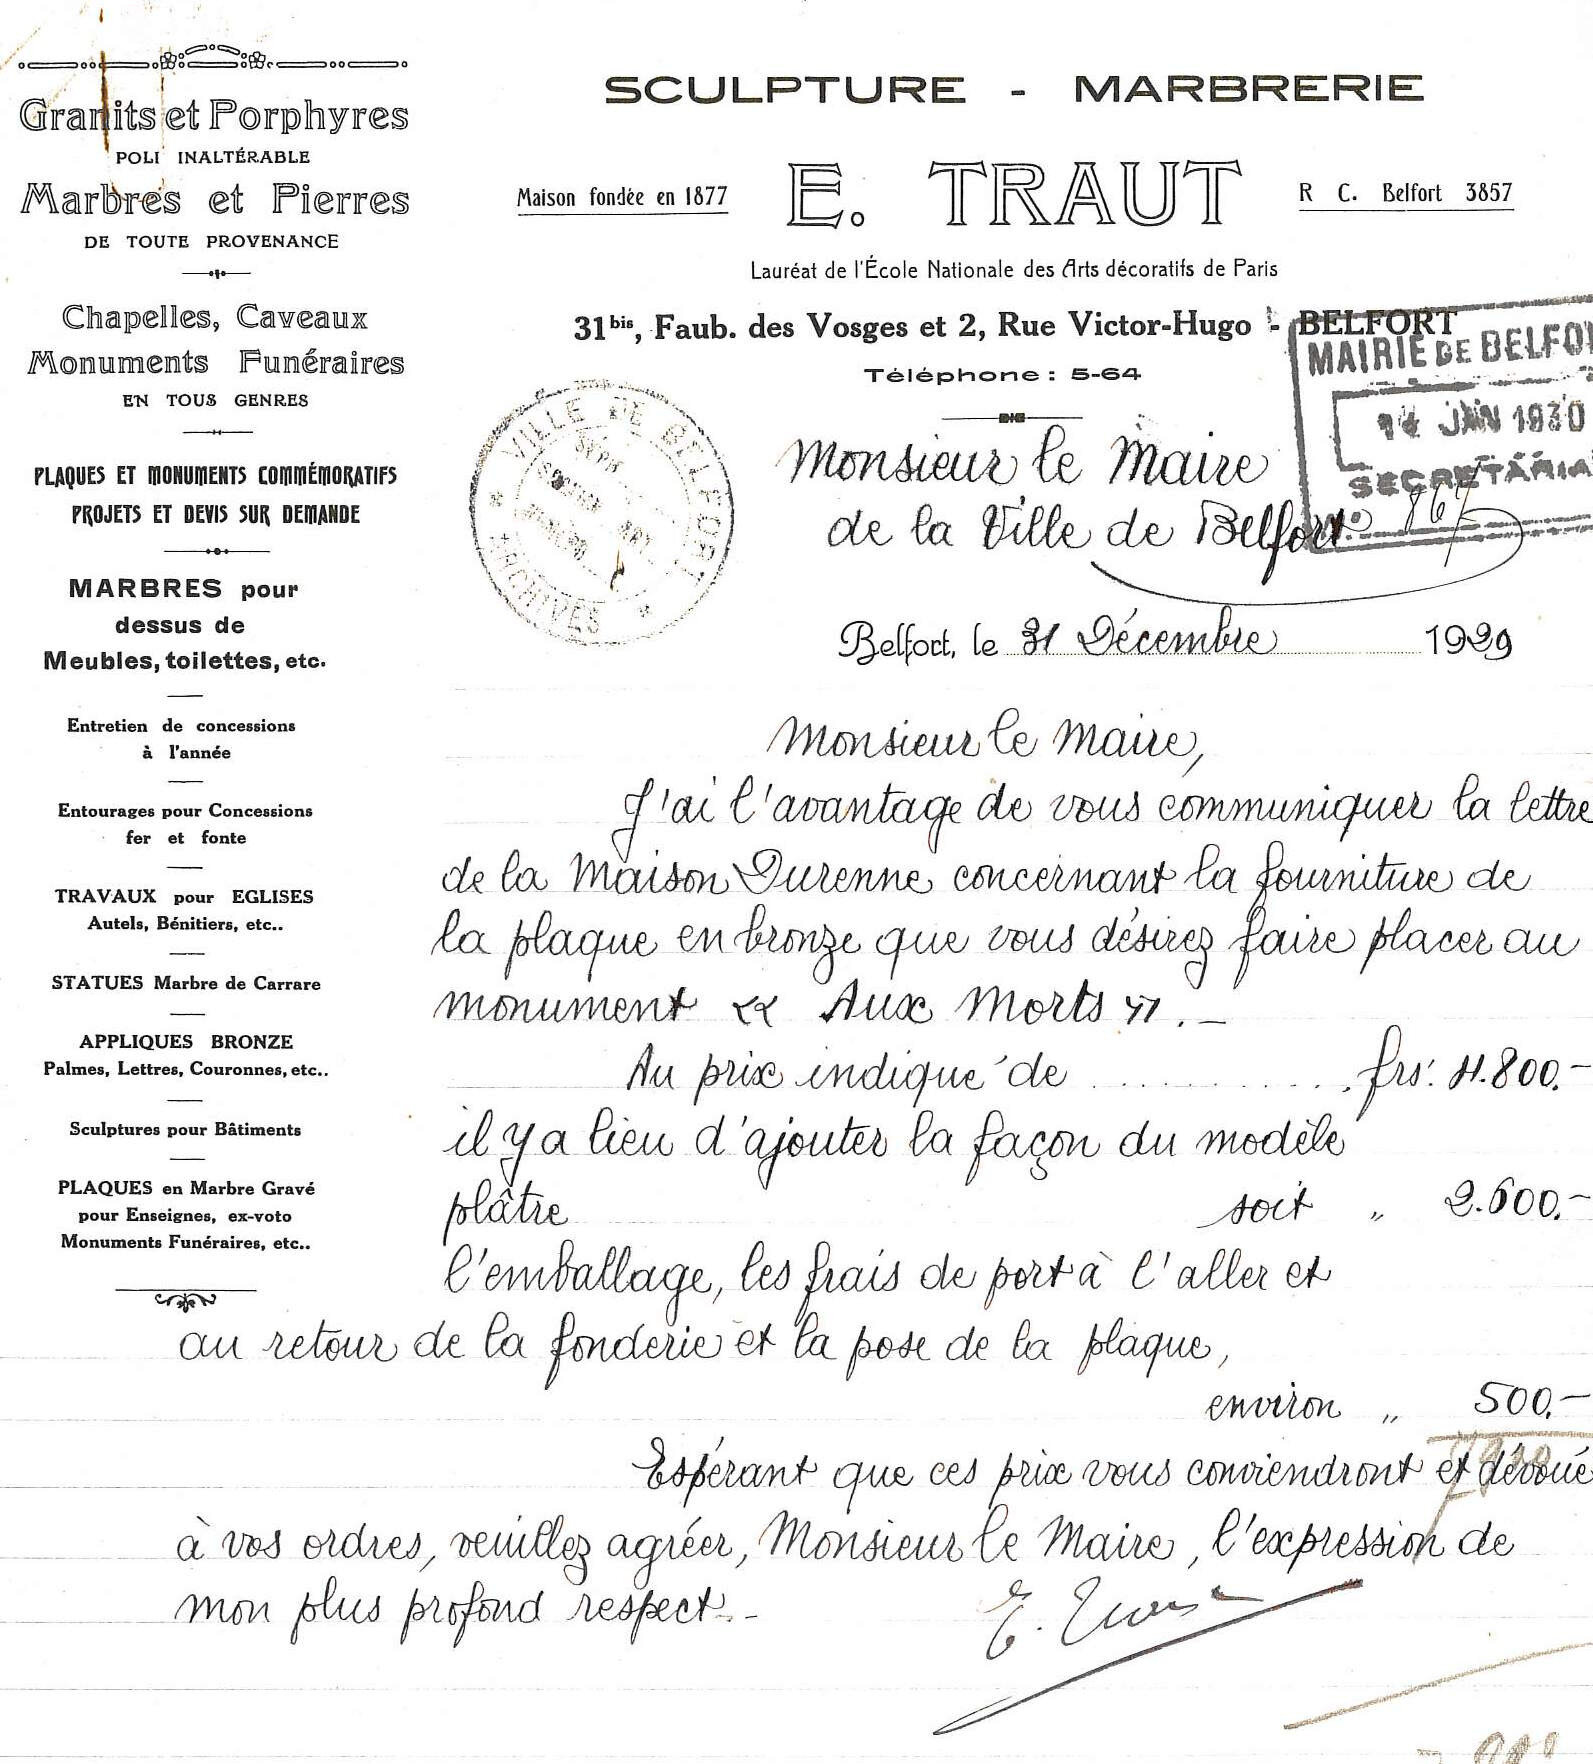 Granits et Porphyres
POLI INALTÉRABLE
Marbres et Pierres
DE TOUTE PROVENANCE
Chapelles, Caveaux
Monuments Funéraires
EN TOUS GENRES
PLAQUES ET MONUMENTS COMMÉMORATIFS
PROJETS ET DEVIS SUR DEMANDE
MARBRES pour
dessus de
Meubles, toilettes, etc.
Entretien de concessions
à l'année
Entourages pour Concessions
fer et fonte
TRAVAUX pour EGLISES
Autels, Bénitiers, etc..
STATUES Marbre de Carrare
APPLIQUES BRONZE
Palmes, Lettres, Couronnes, etc..
Sculptures pour Bâtiments
PLAQUES en Marbre Gravé
pour Enseignes, ex-voto
Monuments Funéraires, etc..
SCULPTURE - MARBRERIE
Maison fondée en 1877
E. TRAUT
R C. Belfort 3857
Lauréat de l'École Nationale des Arts décoratifs de Paris
31bis, Faub. des Vosges et 2, Rue Victor-Hugo - BELFORT
Téléphone : 5-64
MAIRIE DE BELFO
14 JAN 1930
SECRETARIA
867
VILLE DE BELFORT
ARCHIVES
Monsieur le Maire
de la Ville de Belfort
Belfort, le 31 Décembre 1929
Monsieur le Maire,
J'ai l'avantage de vous communiquer la lettre
de la Maison Durenne concernant la fourniture de
la plaque en bronze que vous désirez faire placer au
monument « Aux Morts ». -
Au prix indiqué de .......... frs: 4.800.-
il y a lieu d'ajouter la façon du modèle
plâtre soit " 2.600.-
l'emballage, les frais de port à l'aller et
au retour de la fonderie et la pose de la plaque,
environ " 500.-
Espérant que ces prix vous conviendront et dévoué
à vos ordres, veuillez agréer, Monsieur le Maire, l'expression de
mon plus profond respect. -
E. Traut